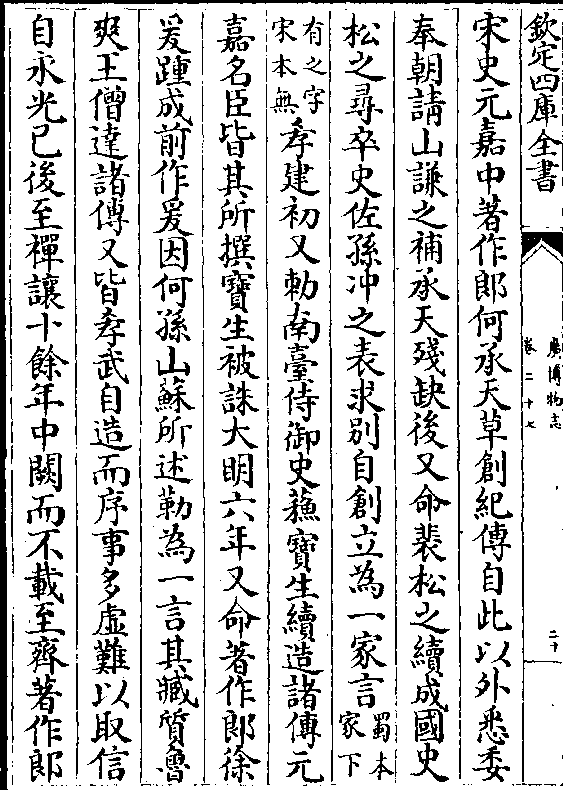 欽定四庫全書
廣博物志
卷二十七
二十
宋史元嘉中著作郎何承天草創紀傳自此以外悉委
奉朝請山謙之補承天殘缺後又命裴松之續成國史
松之尋卒史佐孫冲之表求別自創立為一家言蜀本家下
有之字宋本無孝建初又勅南臺侍御史蘓寶生續造諸傳元
嘉名臣皆其所撰寶生被誅大明六年又命著作郎徐
爰踵成前作爰因何孫山蘇所述勒為一言其臧質魯
爽王僧達諸傳又皆孝武自造而序事多虛難以取信
自永光已後至禪讓十餘年中闕而不載至齊著作郎